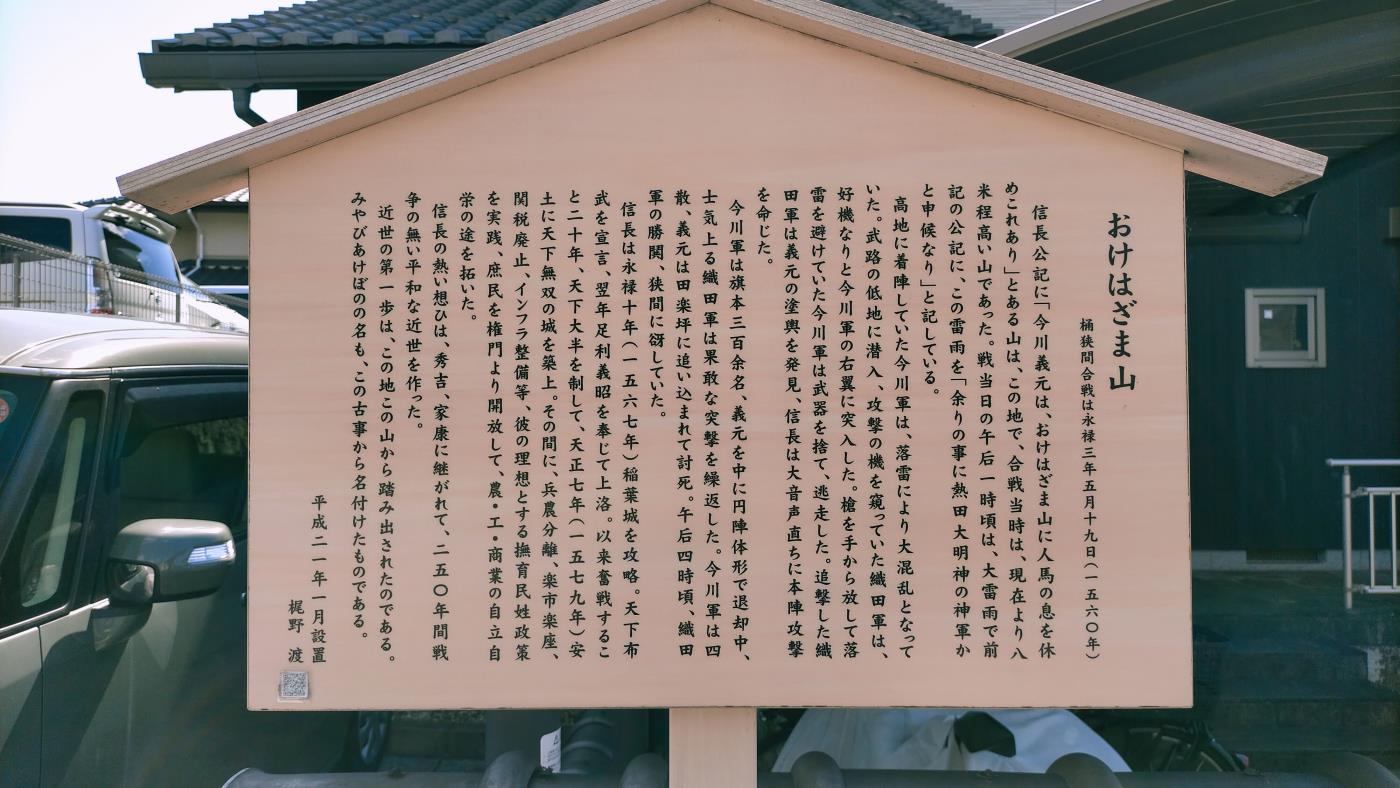 おけはざま山
桶狭間合戦は永禄三年五月十九日（一五六〇年）
信長公記に「今川義元は、おけはざま山に人馬の息を休
めこれあり」とある山は、この地で、合戦当時は、現在より八
米程高い山であった。戦当日の午后一時頃は、大雷雨で前
記の公記に、この雷雨を「余りの事に熱田大明神の神軍か
と申候なり」と記している。
高地に着陣していた今川軍は、落雷により大混乱となって
いた。武路の低地に潜入、攻撃の機を窺っていた織田軍は、
好機なりと今川軍の右翼に突入した。槍を手から放して落
雷を避けていた今川軍は武器を捨て、逃走した。追撃した織
田軍は義元の塗輿を発見、信長は大音声直ちに本陣攻撃
を命じた。
今川軍は旗本三百余名、義元を中に円陣体形で退却中、
士気上る織田軍は果敢な突撃を繰返した。今川軍は四
散、義元は田楽坪に追い込まれて討死。午后四時頃、織田
軍の勝関、狭間に谺していた。
信長は永禄十年（一五六七年）稲葉城を攻略。天下布
武を宣言、翌年足利義昭を奉じて上洛。以来奮戦するこ
と二十年、天下大半を制して、天正七年（一五七九年）安
土に天下無双の城を築上。その間に、兵農分離、楽市楽座、
関税廃止、インフラ整備等、彼の理想とする撫育民姓政策
を実践、庶民を権門より開放して、農・工・商業の自立自
栄の途を拓いた。
信長の熱い想ひは、秀吉、家康に継がれて、二五〇年間戦
争の無い平和な近世を作った。
近世の第一歩は、この地この山から踏み出されたのである。
みやびあけぼのの名も、この古事から名付けたものである。
平成二一年一月設置
梶野 渡